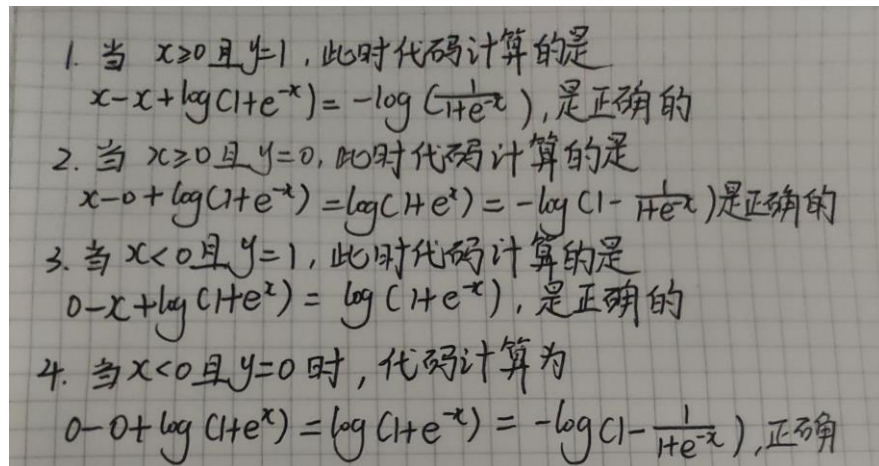 1. 当 x≥0且y=1, 此时代码计算的是
x-x+log(1+e^{-x}) = -log(\frac{1}{1+e^{-x}}), 是正确的
2. 当 x≥0且y=0, 此时代码计算的是
x-0+log(1+e^{-x}) = log(1+e^{x}) = -log(1-\frac{1}{1+e^{-x}})是正确的
3. 当x<0且y=1, 此时代码计算的是
0-x+log(1+e^{x}) = log(1+e^{-x}), 是正确的
4. 当x<0且y=0时, 代码计算为
0-0+log(1+e^{x}) = log(1+e^{-x}) = -log(1-\frac{1}{1+e^{-x}}), 正确